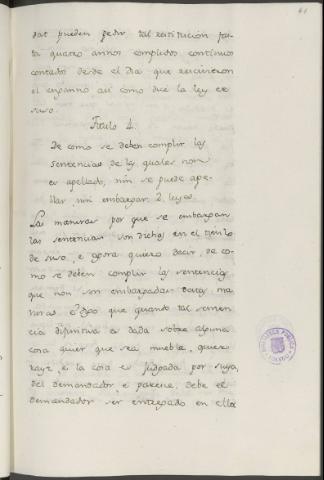 41
dat pueden pedir tal restitucion fas-
ta quatro annos complidos continuos
contados desde el dia que recivieron
el enganno asi como dice la ley de
suso.
Titulo 4.
De como se deben complir las
sentencias de las quales non
es apellado, nin se puede ape-
llar, nin embargar. 2. leyes.
Las maneras por que se embargan
las sentencias son dichas en el titulo
de suso, e agora quiero decir, de co-
mo se deben complir las sentencias
que non son embargadas destas ma-
neras. e digo que quando tal senten-
cia difinitiva es dada sobre alguna
cosa quier que sea mueble, quier
rayz, e la cosa es judgada por suya,
del demandador, e parece, debe el
demandador ser entregado en ella